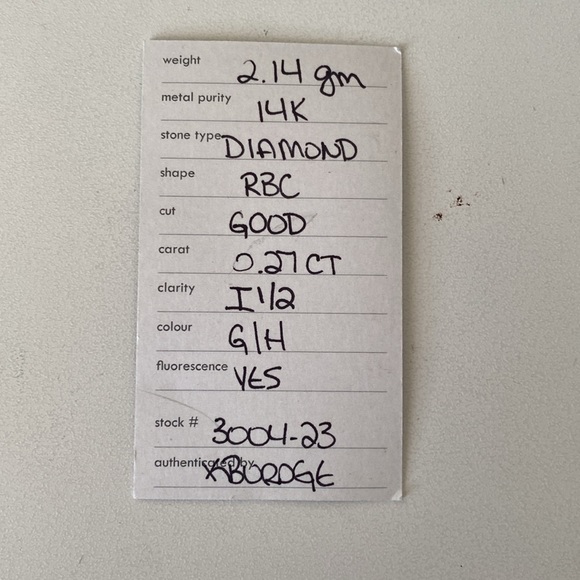 weight 2.14 gm
metal purity 14K
stone type DIAMOND
shape RBC
cut GOOD
carat 0.27 CT
clarity I 1/2
colour G/H
fluorescence YES
stock # 3004-23
authenticated by